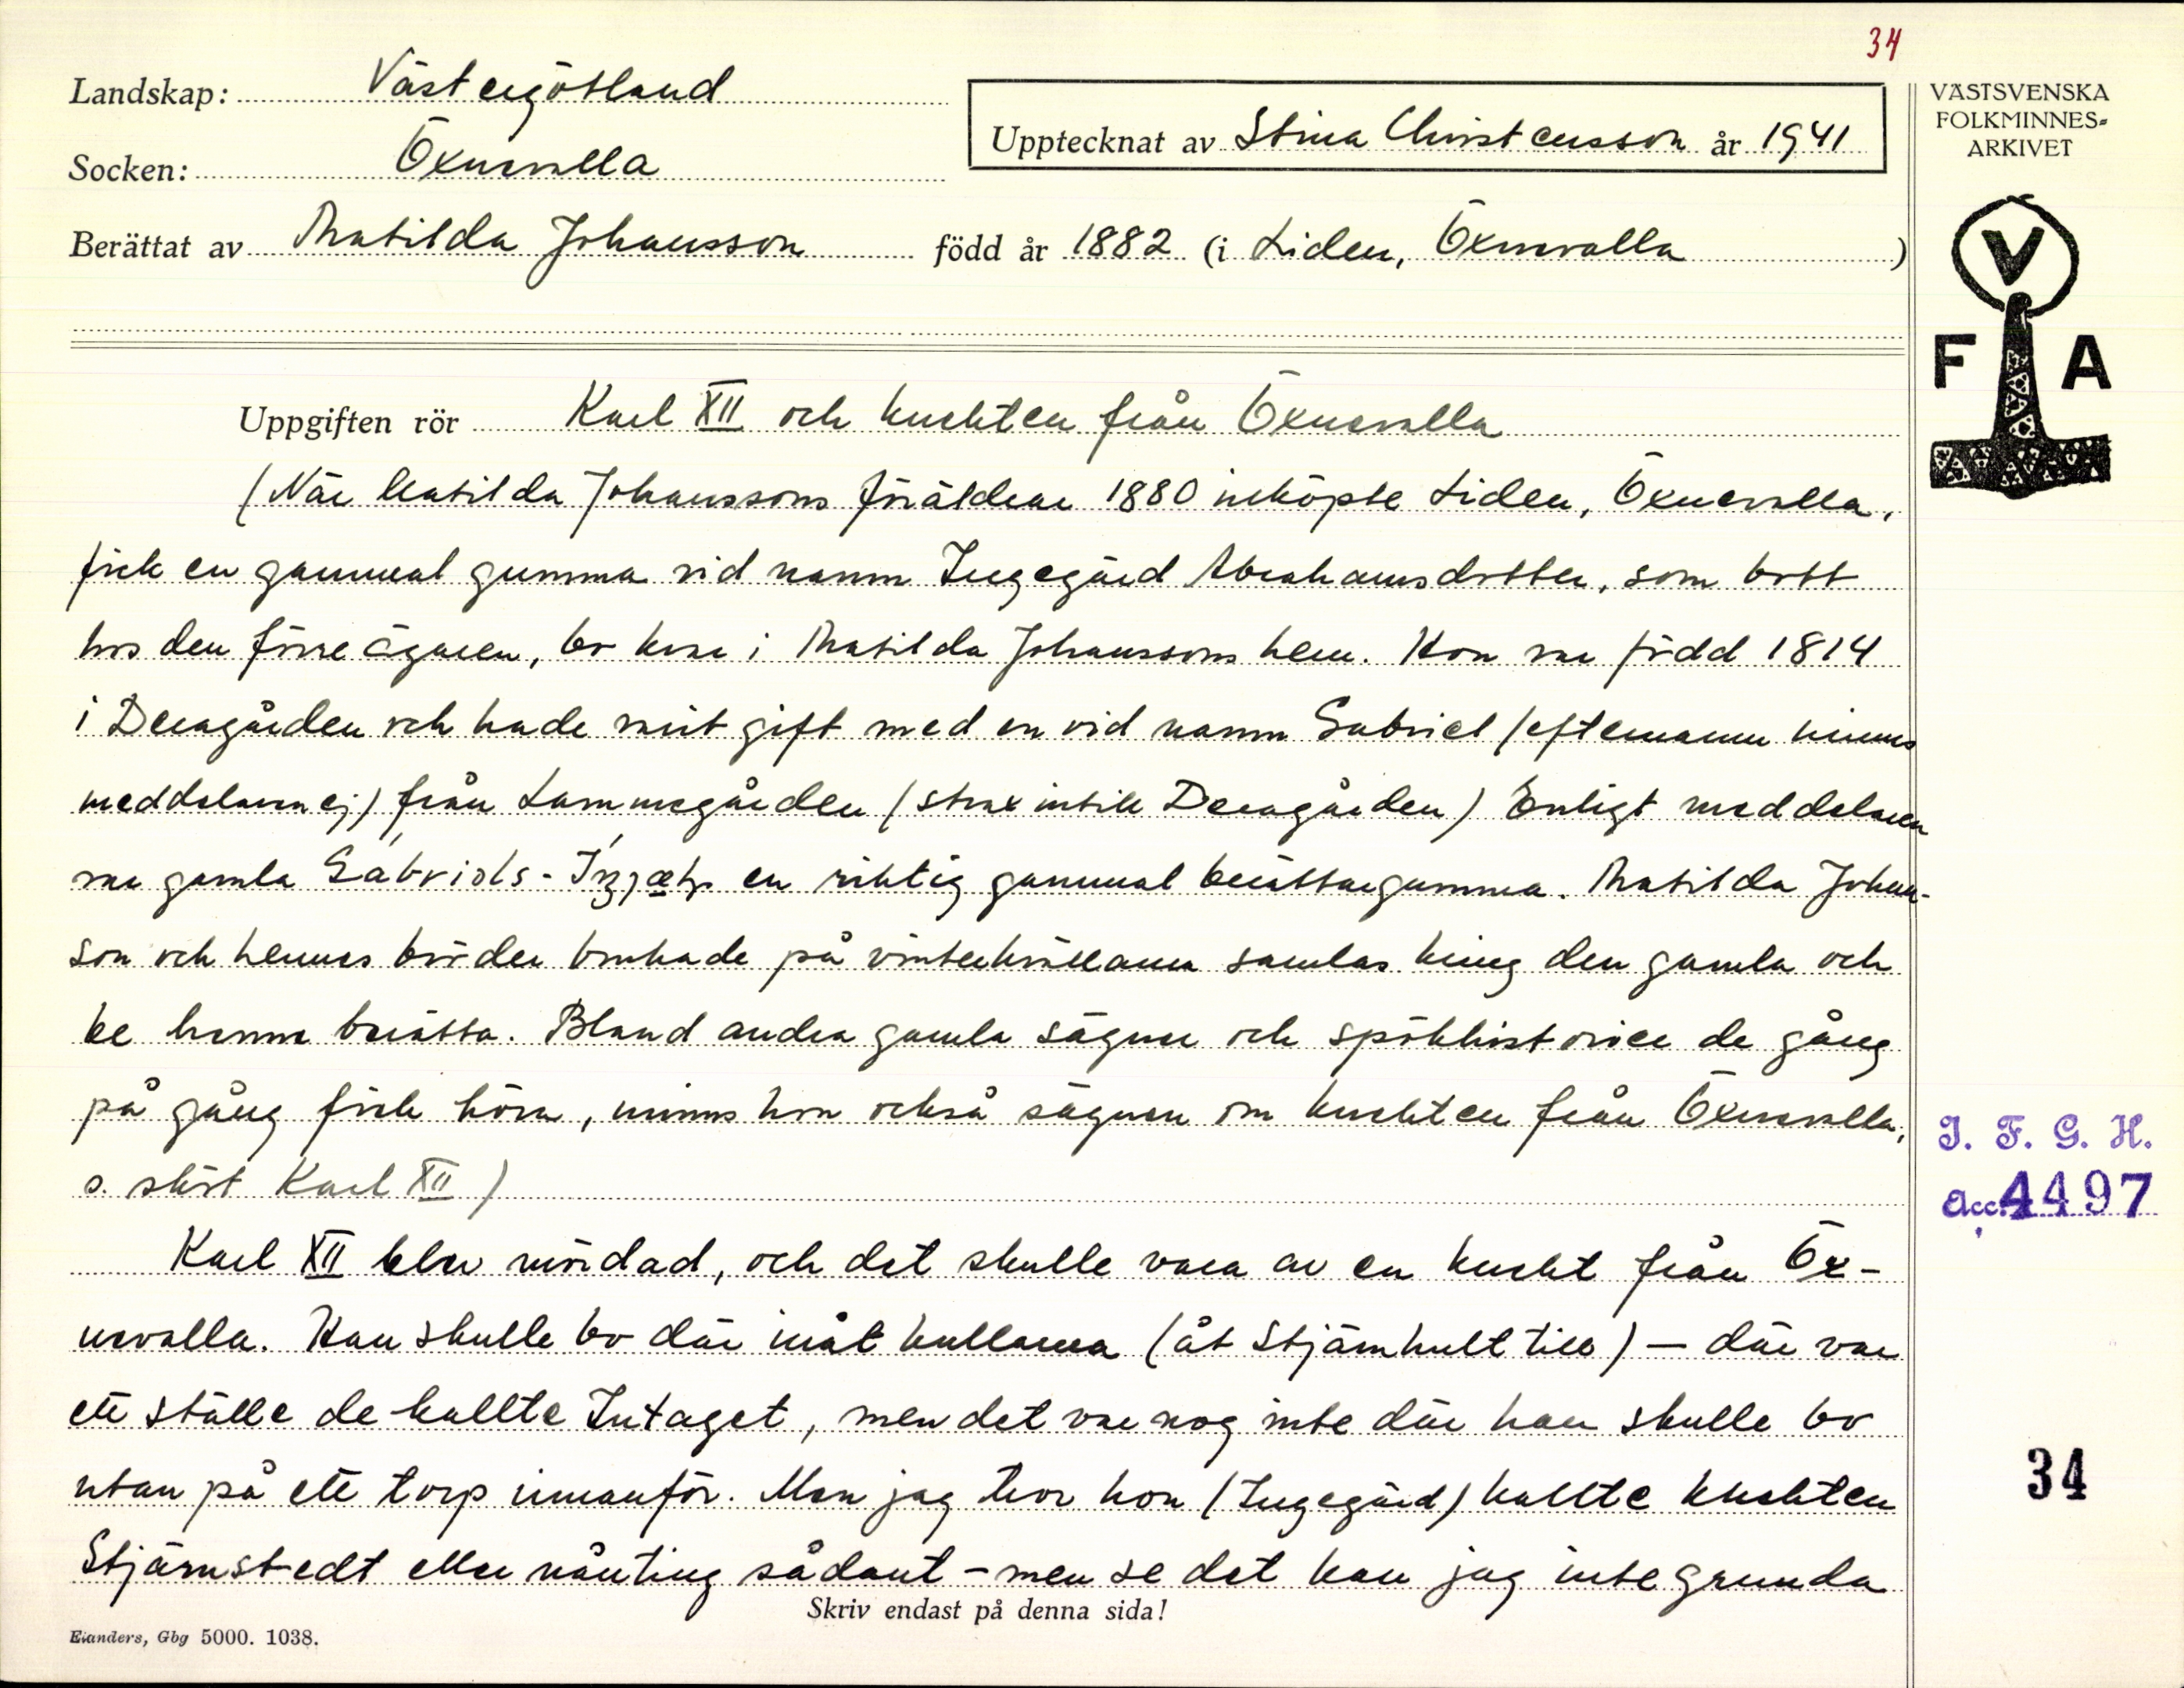 34
Landskap: Västergötland
Socken: Öxnevalla
Upptecknat av Stina Christensson år 1941
Berättat av Matilda Johansson född år 1882 (i Liden, Öxnevalla )
VÄSTSVENSKA
FOLKMINNES=
ARKIVET
V
F A
Uppgiften rör Karl XII och knekten från Öxnevalla
(När Matilda Johanssons föräldrar 1880 inköpte Liden, Öxnevalla,
fick en gammal gumma vid namn Ingegärd Abrahamsdotter, som bott
hos den förre ägaren, bo kvar i Matilda Johanssons hem. Hon var född 1814
i Deragården och hade varit gift med en vid namn Gabriel (efternamn minns
meddelaren ej) från Lammegården (strax intill Deragården) Enligt meddelaren
var gamla en riktig gammal berättargumma. Matilda Johans-
son och hennes bröder brukade på vinterkvällarna samlas kring den gamla och
be henne berätta. Bland andra gamla sägner och spökhistorier de gång
på gång fick höra, minns hon också sägnen om knekten från Öxnevalla,
s. sköt Karl XII)
Karl XII blev mördad, och det skulle vara av en knekt från Öx-
nevalla. Han skulle bo där inåt kullarna (åt Stjärnhult till) — där var
ett ställe de kallte Intaget, men det var nog inte där han skulle bo
utan på ett torp innanför. Men jag tror hon (Ingegärd) kallte knekten
Stjärnstedt eller nånting sådant – men se det kan jag inte grunda
Skriv endast på denna sida!
Elanders, Gbg 5000. 1038.
I. F. G. H.
Acc. 4497
34